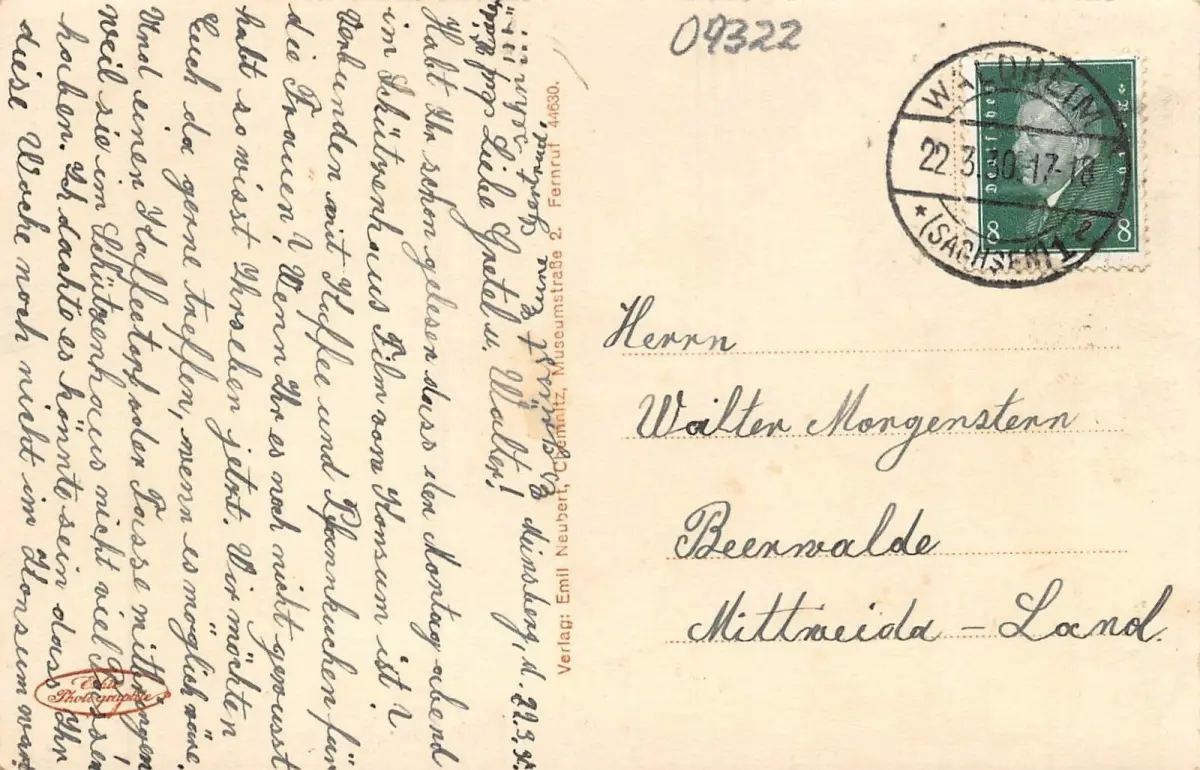 09322
WALDHEIM
22.3.30.17-18
* (SACHSEN) 1 2
8 8
Herrn
Walter Morgenstern
Beerwalde
Mittweida - Land.
Verlag: Emil Neubert, Chemnitz, Museumstraße 2. Fernruf 44630.
Minsberg, d. 22.3.30.
Liebe Gretel u. Walter!
Habt Ihr schon gelesen dass den Montag abend
im Schützenhaus Film vom Konsum ist?
Verbunden mit Kaffee und Pfannkuchen für
die Frauen? Wenn Ihr es noch nicht gewusst
habt so wisst Ihrs eben jetzt. Wir möchten
Euch da gerne treffen, wenn es möglich wäre.
Und einen Kaffeetopf oder Tasse mitbringen
weil sie im Schützenhaus nicht viel Tassen
haben. Ich dachte es könnte sein dass Ihr
diese Woche noch nicht im Konsum wart
Es grüsst Eure Gertraud.
Echte
Photographie